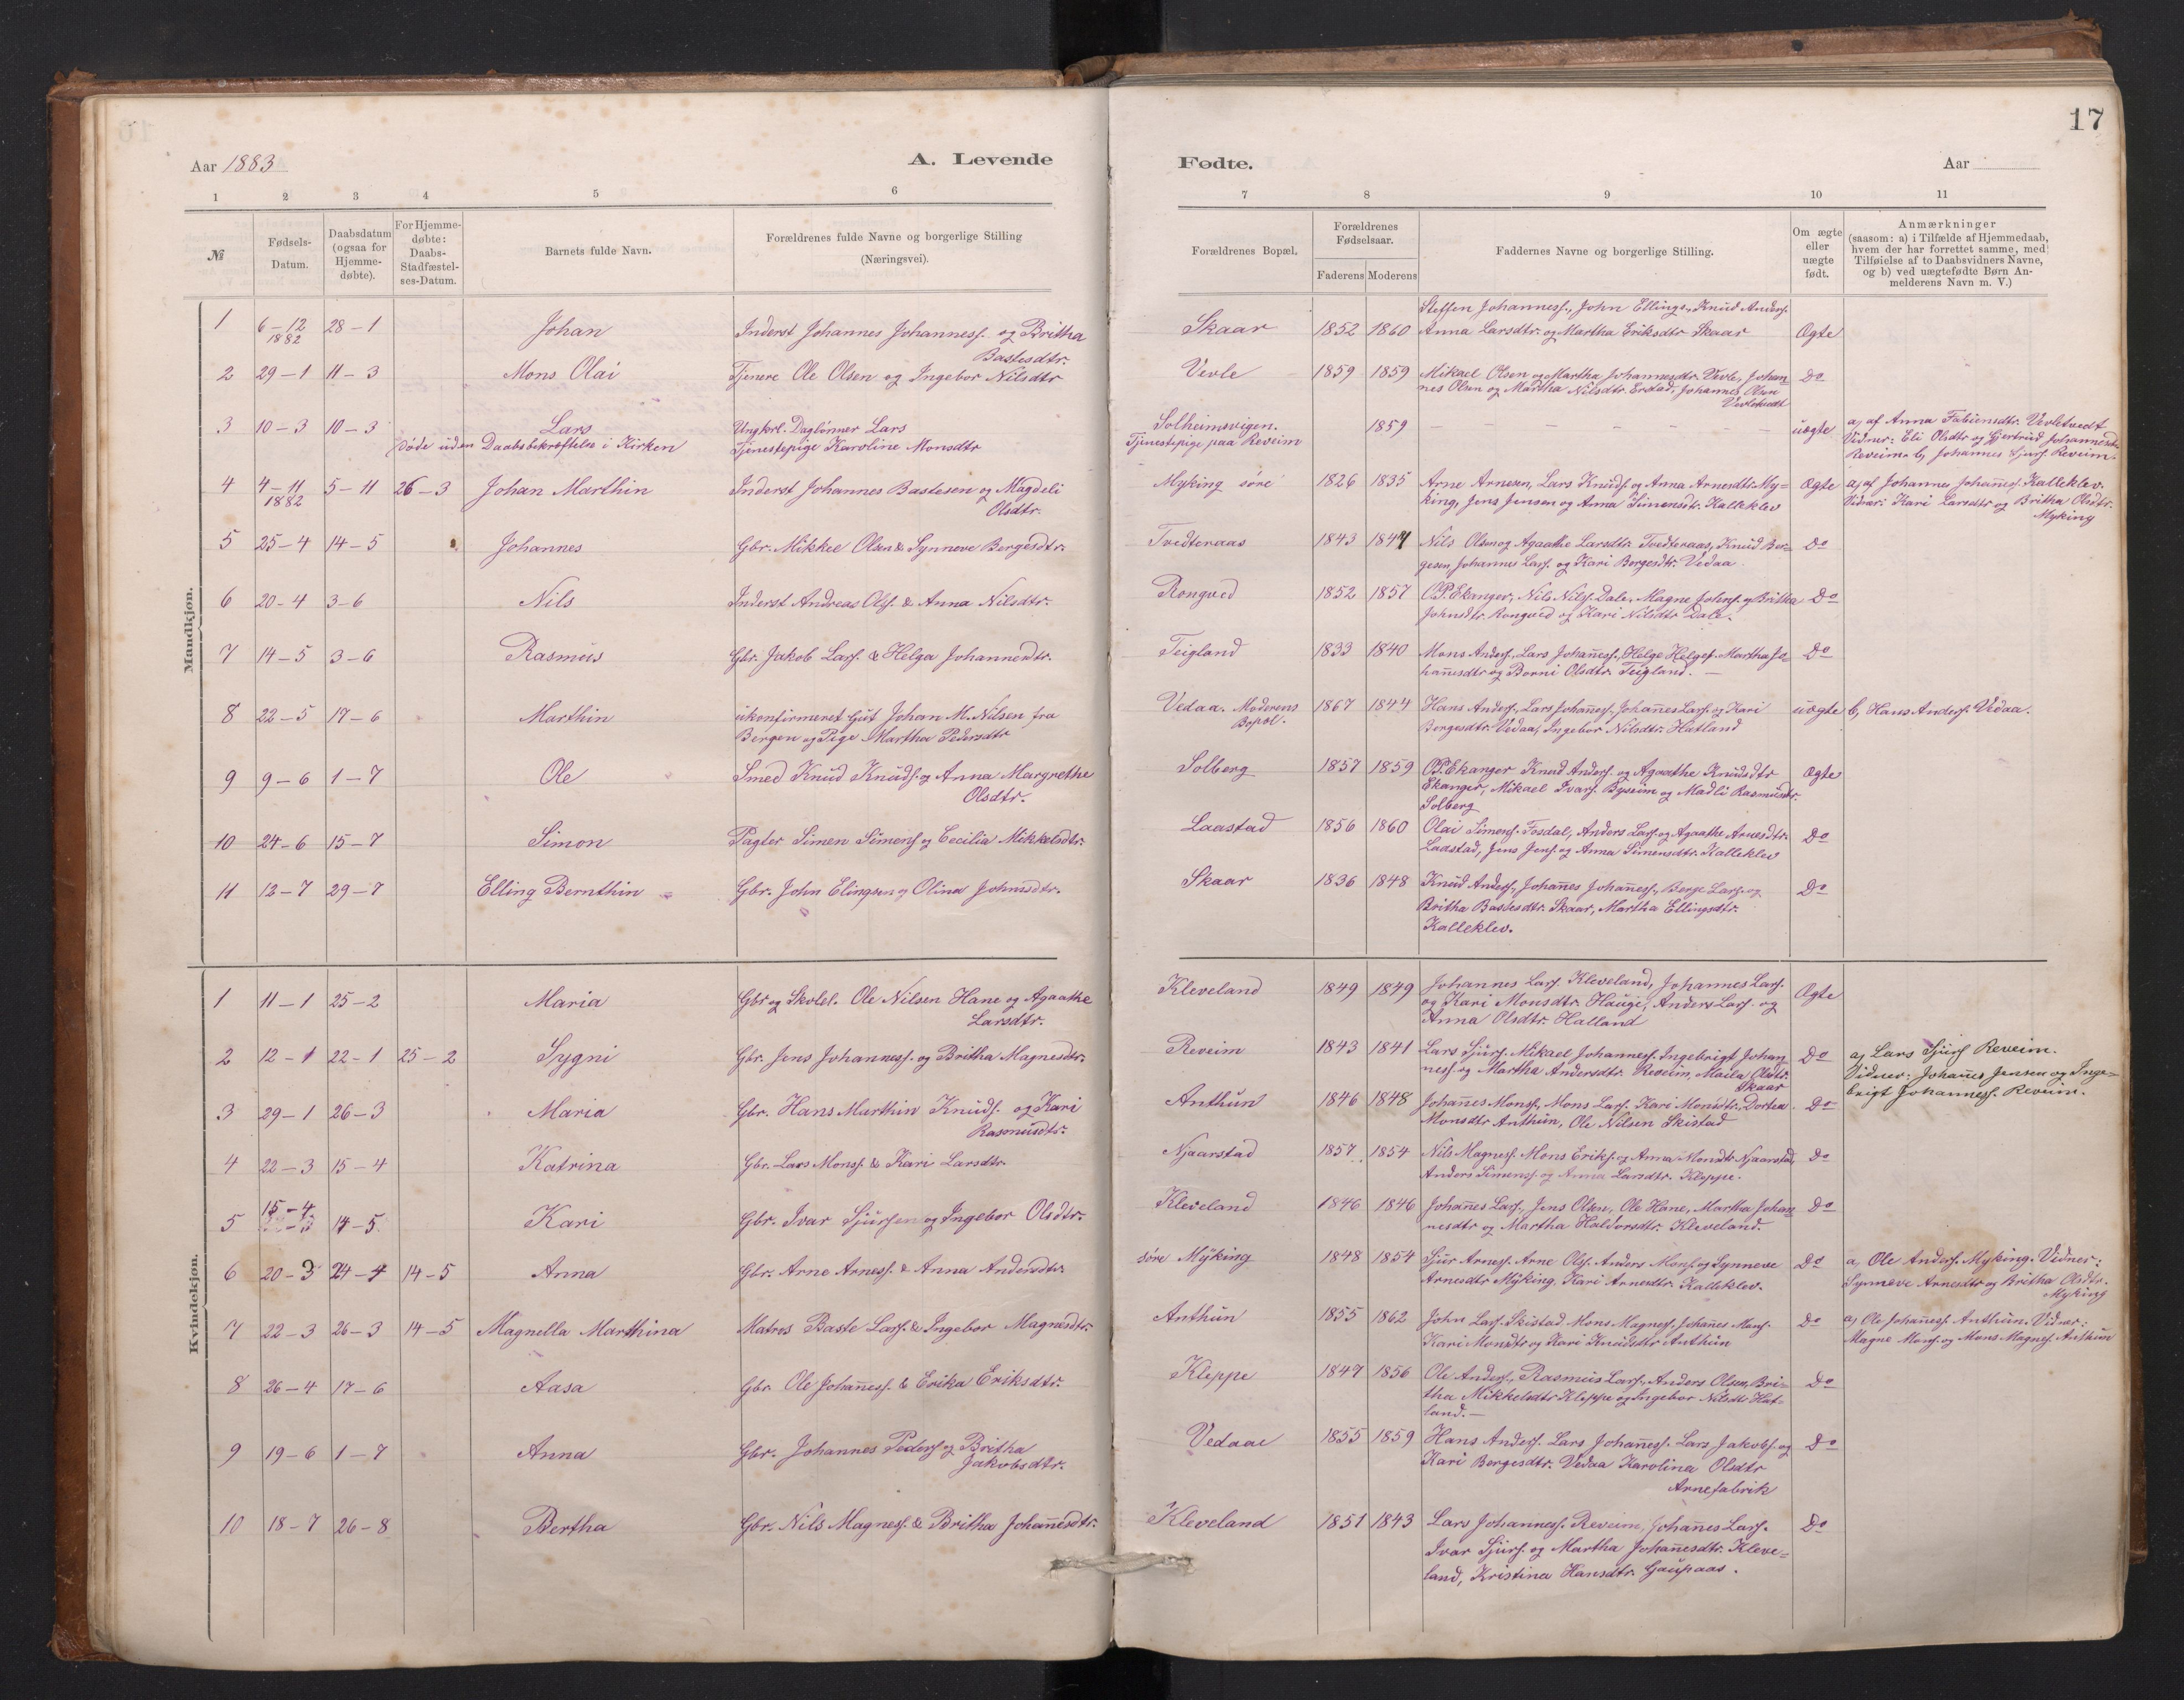 17
Aar 1883
A. Levende
Fødte.
Aar
1 2 3 4 5 6 7 8 9 10 11
№
Fødsels-
Datum.
Daabsdatum
(ogsaa for
Hjemme-
døbte).
For Hjemme-
døbte:
Daabs-
Stadfæstel-
ses-Datum.
Barnets fulde Navn.
Forældrenes fulde Navne og borgerlige Stilling
(Næringsvei).
Forældrenes Bopæl.
Forældrenes
Fødselsaar.
Faderens Moderens
Faddernes Navne og borgerlige Stilling.
Om ægte
eller
uægte
født.
Anmærkninger
(saasom: a) i Tilfælde af Hjemmedaab,
hvem der har forrettet samme, med
Tilføielse af to Daabsvidners Navne,
og b) ved uægtefødte Børn An-
melderens Navn m. V.)
Mandkjøn.
1 6-12 1882 28-1 Johan Inderst Johannes Johanness. og Britha
Bastesdtr.
Skaar 1852 1860
Steffen Johanness., John Ellings., Knud Anders.
Anna Larsdtr. og Martha Eriksdtr Skaar Ægte
2 29-1 11-3 Mons Olai Tjenere Ole Olsen og Ingebor Nilsdtr
Vevle 1859 1859 Mikael Olsen og Martha Johannesdtr. Vevle, Johan-
nes Olsen og Martha Nilsdtr. Erstad, Johannes Olsen
Vevletvedt Do
3 10-3 10-3 Lars Ungkrl. Daglønner Lars
døde uden Daabsbekræftelse i Kirken Tjenestepige Karoline Monsdtr
Solheimsvigen.
Tjenestepige paa Reveim 1859 — — — — — uægte
a, af Anna Fabiensdtr. Vevletvedt
Vidner: Eli Olsdtr og Gjertrud Johannesdtr.
Reveim. b, Johannes Sjurs. Reveim.
4 4-11 1882 5-11 26-3 Johan Marthin Inderst Johannes Bastesen og Magdeli
Olsdtr.
Myking søre 1826 1835 Arne Arnesen, Lars Knuds. og Anna Arnesdtr. My-
king, Jens Jensen og Anna Simensdtr. Kalleklev Ægte
a, af Johannes Johañes. Kalleklev.
Vidner: Kari Larsdtr og Britha Olsdtr.
Myking
5 25-4 14-5 Johannes Gbr. Mikkel Olsen & Synneve Bergesdtr.
Tvedteraas 1843 1847 Nils Olsen og Agaathe Larsdtr. Tvedteraas, Knud Ber-
gesen, Johannes Lars. og Kari Bergesdtr. Vedaa Do
6 20-4 3-6 Nils Inderst Andreas Ols. & Anna Nilsdtr.
Rongved 1852 1857 O.P. Ekanger, Nils Nils. Dale, Magne Johns. og Britha
Johnsdtr. Rongved og Kari Nilsdtr Dale. Do
7 14-5 3-6 Rasmus Gbr. Jakob Lars. & Helga Johannesdtr.
Teigland 1833 1840 Mons Anders., Lars Johañess., Helge Helges. Martha Jo-
hañesdtr og Borni Olsdtr. Teigland. — Do
8 22-5 17-6 Marthin ukonfirmeret Gut Johan M. Nilsen fra
Bergen og Pige Martha Pedersdtr
Vedaa. Moderens
Bopæl. 1867 1844 Hans Anders., Lars Johañes., Johañes Lars. og Kari
Bergesdtr. Vedaa, Ingebor Nilsdtr. Hatland uægte b, Hans Anders. Vedaa.
9 9-6 1-7 Ole Smed Knud Knuds. og Anna Margrethe
Olsdtr.
Solberg 1857 1859 O.P. Ekanger Knud Anders. og Agaathe Knudsdtr
Ekanger, Mikael Ivars. Byseim og Madli Rasmusdtr.
Solberg Ægte
10 24-6 15-7 Simon Pagter Simen Simens. og Cecilia Mikkelsdtr.
Laastad 1856 1860 Olai Simens. Fosdal, Anders Lars. og Agaathe Arnesdtr.
Laastad, Jens Jens. og Anna Simensdtr. Kalleklev Do
11 12-7 29-7 Elling Bernthin Gbr. John Elingsen og Olina Johnsdtr.
Skaar 1836 1848 Knud Anders., Johañes Johañess., Berge Lars. og
Britha Bastesdtr. Skaar, Martha Ellingsdtr.
Kalleklev. Do
Kvindekjøn.
1 11-1 25-2 Maria Gbr og Skolel. Ole Nilsen Hane og Agaathe
Larsdtr.
Kleveland 1849 1849 Johannes Lars. Kleveland, Johannes Lars.
og Kari Monsdtr. Hauge, Anders Lars. og
Anna Olsdtr. Halland Ægte
2 12-1 22-1 25-2 Sygni Gbr. Jens Johanness. og Britha Magnesdtr.
Reveim 1843 1841 Lars Sjurs. Mikael Johanness. Ingebrigt Johan-
ness. og Martha Andersdtr. Reveim, Maila Olsdtr.
Skaar Do
a, Lars Sjurs Reveim.
Vidner: Johañes Jensen og Inge-
brigt Johanness. Reveim.
3 29-1 26-3 Maria Gbr. Hans Marthin Knuds. og Kari
Rasmusdtr.
Anthun 1846 1848 Johañes Monss., Mons Lars. Kari Monsdtr., Dortea
Monsdtr Anthun, Ole Nilsen Skistad Do
4 22-3 15-4 Katrina Gbr. Lars Mons. & Kari Larsdtr.
Njaarstad 1857 1854 Nils Magnes. Mons Eriks. og Anna Monsdtr. Njaarstad,
Anders Simens. og Anna Larsdtr. Kleppe. Do
5 15-4 14-5 Kari Gbr. Ivar Sjursen og Ingebor Olsdtr.
Kleveland 1846 1846 Johañes Lars., Jens Olsen, Ole Hane, Martha Johan-
nesdtr og Martha Haldorsdtr. Kleveland. Do
6 20-3 24-4 14-5 Anna Gbr. Arne Arness. & Anna Andersdtr.
søre Myking 1848 1854 Sjur Arnes. Arne Ols. Anders Mons. og Synneve
Arnesdtr Myking, Kari Arnesdtr. Kalleklev. Do
a, Ole Anders. Myking. Vidner:
Synneve Arnesdtr og Britha Olsdtr.
Myking
7 22-3 26-3 14-5 Magnella Marthina Matros Baste Lars. & Ingebor Magnesdtr.
Anthun 1855 1862 John Lars. Skistad Mons Magnes. Johañes Mons.
Kari Monsdtr og Kari Knudsdtr Anthun Do
a, Ole Johañess. Anthun. Vidner:
Magne Mons. og Mons Magnes. Anthun
8 26-4 17-6 Aasa Gbr. Ole Johañess. & Erika Eriksdtr.
Kleppe 1847 1856 Ole Anders., Rasmus Lars., Anders Olsen, Bri-
tha Mikkelsdtr Kleppe og Ingebor Nilsdtr Hat-
land. — Do
9 19-6 1-7 Anna Gbr. Johannes Peders. og Britha
Jakobsdtr.
Vedaae 1855 1859 Hans Anders. Lars Johañess. Lars Jakobs. og
Kari Bergesdtr. Vedaa Karolina Olsdtr
Arnefabrik Do
10 18-7 26-8 Bertha Gbr. Nils Magnes. & Britha Johañesdtr.
Kleveland 1851 1843 Lars Johanness. Reveim, Johañes Lars.
Ivar Sjurs. og Martha Johañesdtr. Kleve-
land, Kristina Hansdtr. Gaupaas. Do